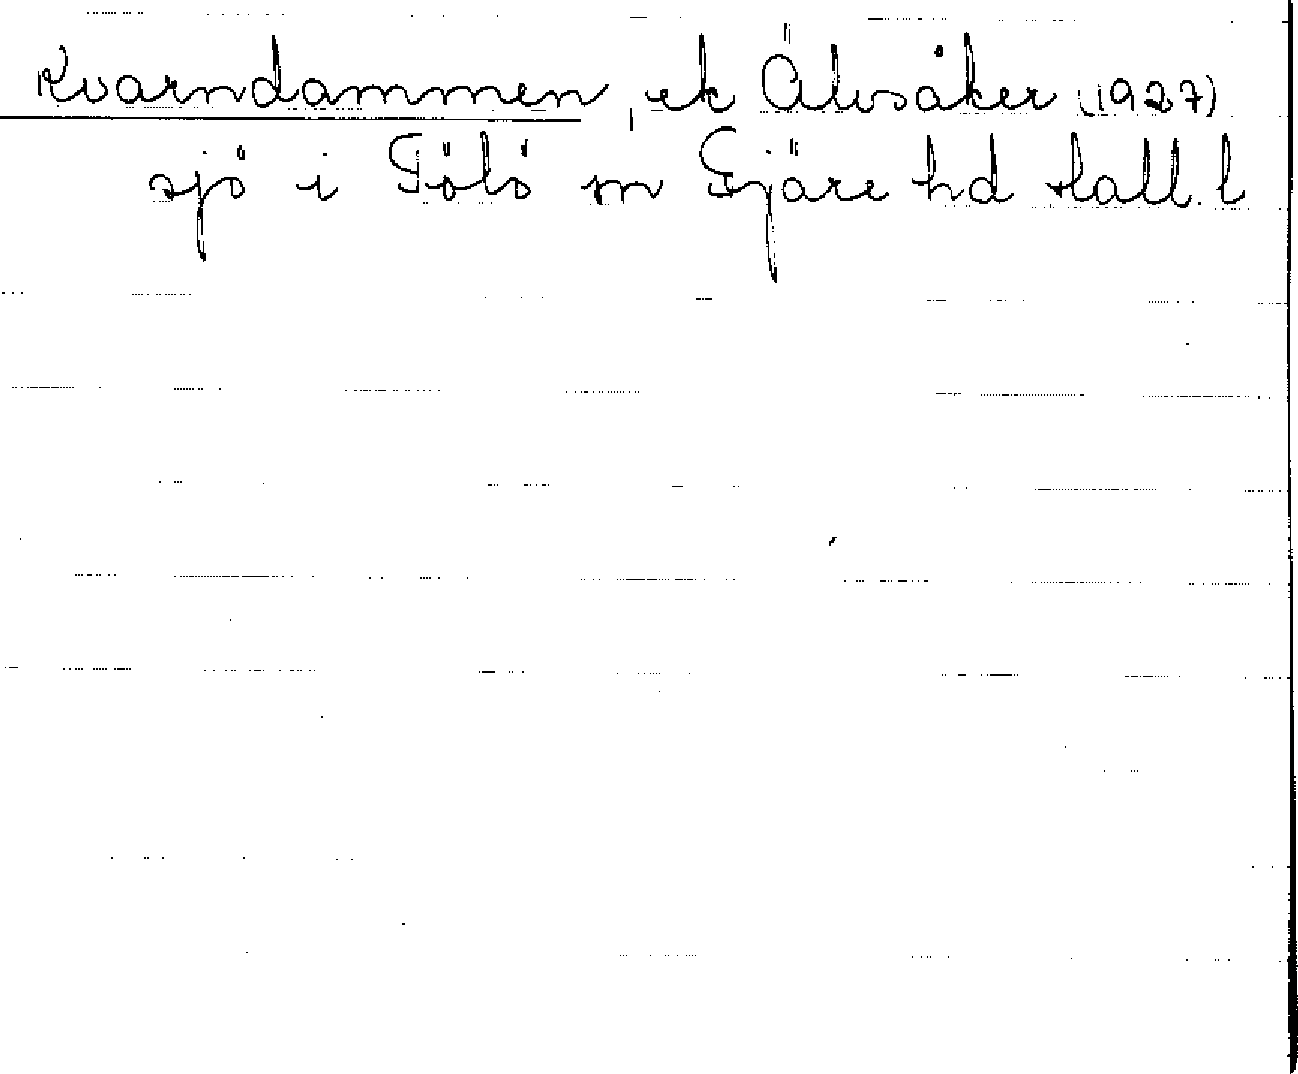 Kvarndammen, ek Älvsåker (1927)
sjö i Tölö sn Fjäre hd Hall. l